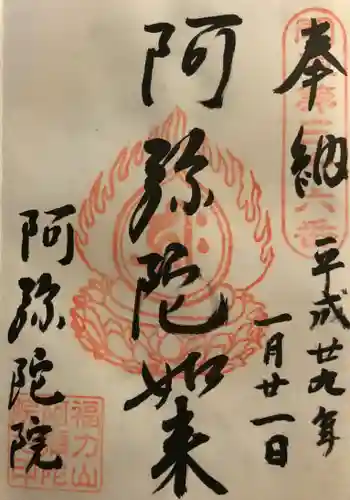 奉納
平成廿九年
一月廿一日
阿弥陀如来
阿弥陀院
福力山
阿弥陀
院印